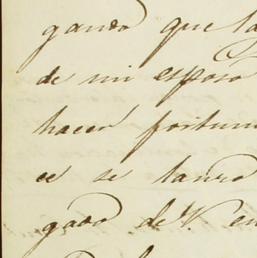 gando que la
de mi esposo
hacer fortun
ce se lanzo
gado de V. en